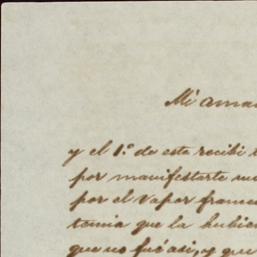 Mi ama
y el 1.º de este recibi
por manifestarte
por el vapor france
tenia que la hubie
que no fué asi, y que